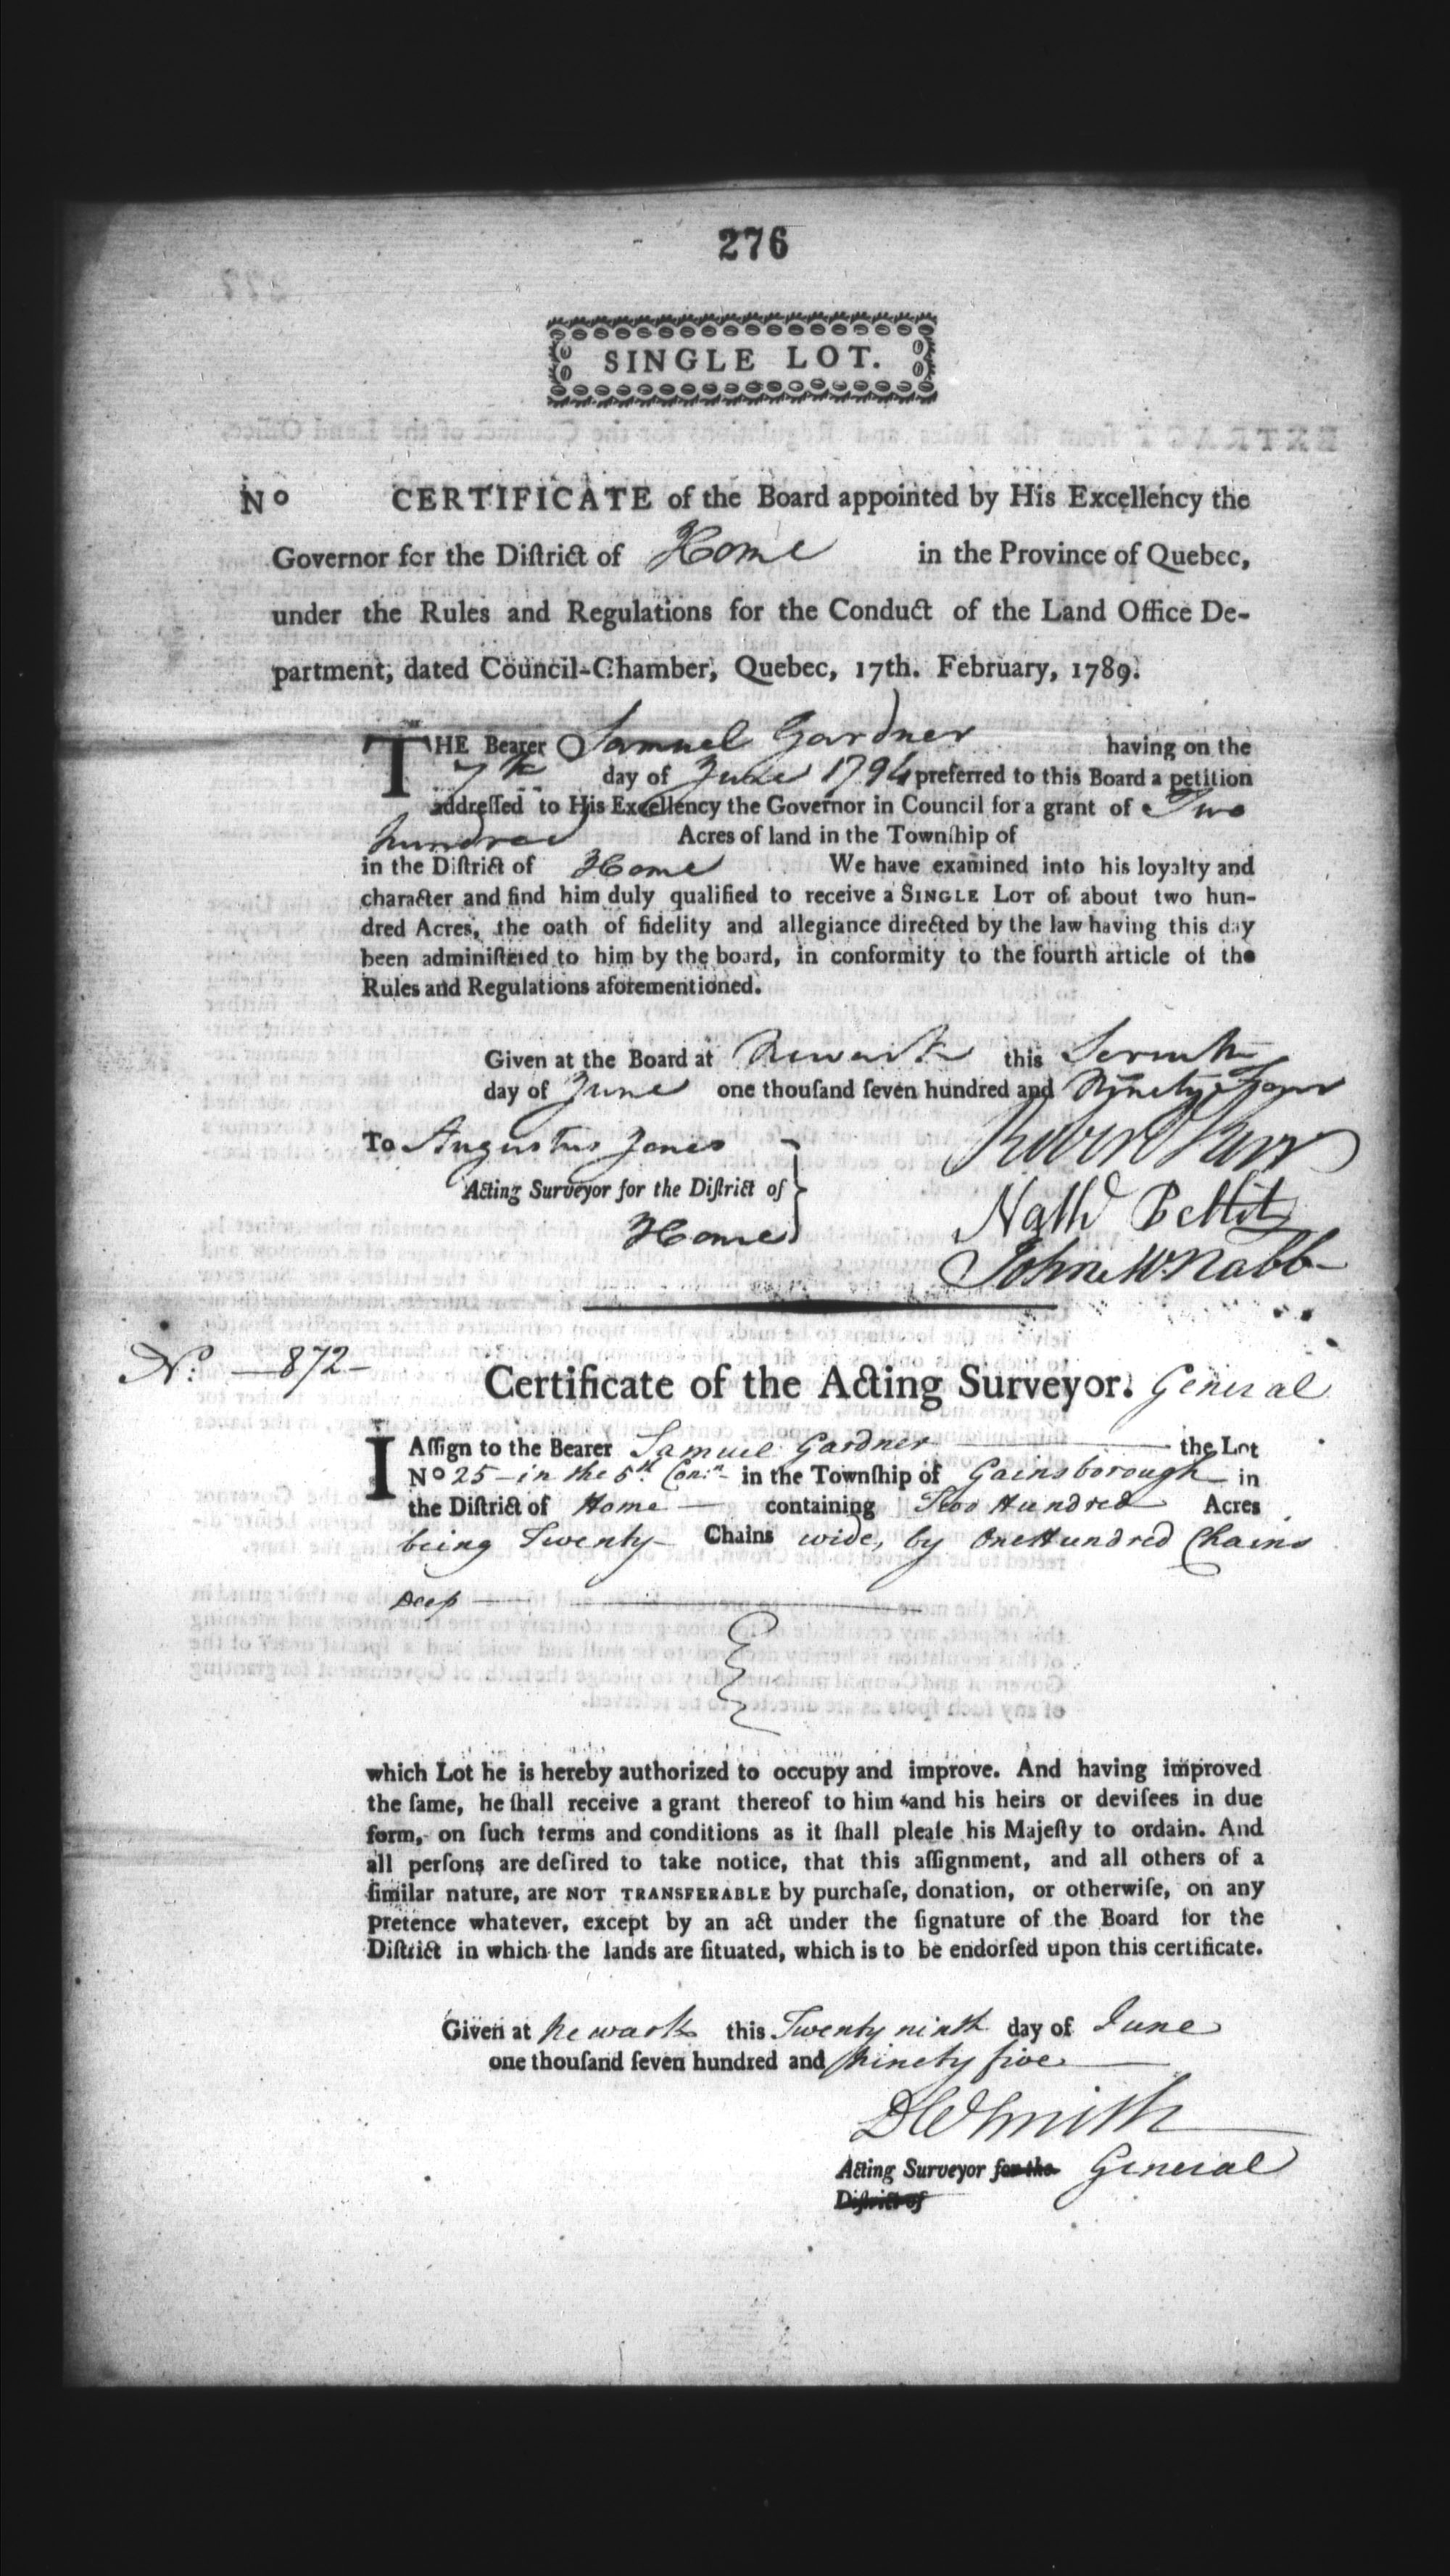 276
SINGLE LOT.
No CERTIFICATE of the Board appointed by His Excellency the
Governor for the Diſtrict of Home in the Province of Quebec,
under the Rules and Regulations for the Conduct of the Land Office De-
partment, dated Council-Chamber, Quebec, 17th. February, 1789.
THE Bearer Samuel Gardner having on the
7th day of June 1794 preferred to this Board a petition
addreſſed to His Excellency the Governor in Council for a grant of Two
hundred Acres of land in the Townſhip of
in the Diſtrict of Home We have examined into his loyalty and
character and find him duly qualified to receive a SINGLE LOT of about two hun-
dred Acres, the oath of fidelity and allegiance directed by the law having this day
been adminiſtered to him by the board, in conformity to the fourth article of the
Rules and Regulations aforementioned.
Given at the Board at Newark this Seventh
day of June one thouſand ſeven hundred and Ninety Four
To Augustus Jones
Robert Kerr
Acting Surveyor for the Diſtrict of
Home
Nathl Pettit
John McNabb
No. 872
Certificate of the Acting Surveyor. General
I Aſſign to the Bearer Samuel Gardner the Lot
No 25 in the 5th Con:n in the Townſhip of Gainsborough in
the Diſtrict of Home containing Two Hundred Acres
being Twenty Chains wide, by One Hundred Chains
Deep
which Lot he is hereby authorized to occupy and improve. And having improved
the ſame, he ſhall receive a grant thereof to him and his heirs or deviſees in due
form, on ſuch terms and conditions as it ſhall pleaſe his Majeſty to ordain. And
all perſons are deſired to take notice, that this aſſignment, and all others of a
ſimilar nature, are NOT TRANSFERABLE by purchaſe, donation, or otherwiſe, on any
pretence whatever, except by an act under the ſignature of the Board for the
Diſtrict in which the lands are ſituated, which is to be endorſed upon this certificate.
Given at Newark this Twenty ninth day of June
one thouſand ſeven hundred and ninety five
DWSmith
Acting Surveyor for the General
Diſtrict of